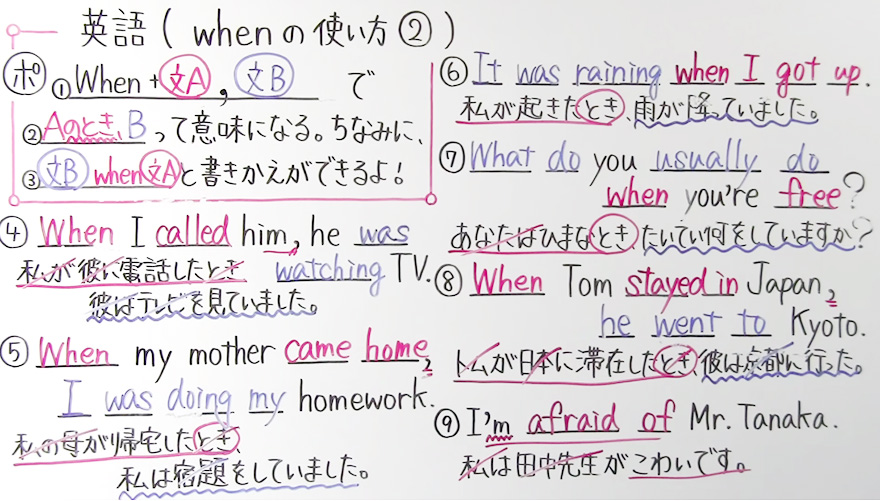 英語 ( whenの使い方② )
ポ ①When + 文A , 文B で
②Aのとき、B って意味になる。ちなみに、
③文B when文Aと書きかえができるよ!
④ When I called him, he was
watching TV.
私が彼に電話したとき
彼はテレビを見ていました。
⑤ When my mother came home,
I was doing my homework.
私の母が帰宅したとき、
私は宿題をしていました。
⑥ It was raining when I got up.
私が起きたとき、雨が降っていました。
⑦ What do you usually do
when you're free?
あなたはひまなとき、たいてい何をしていますか?
⑧ When Tom stayed in Japan,
he went to Kyoto.
トムが日本に滞在したとき、彼は京都に行った。
⑨ I'm afraid of Mr. Tanaka.
私は田中先生がこわいです。